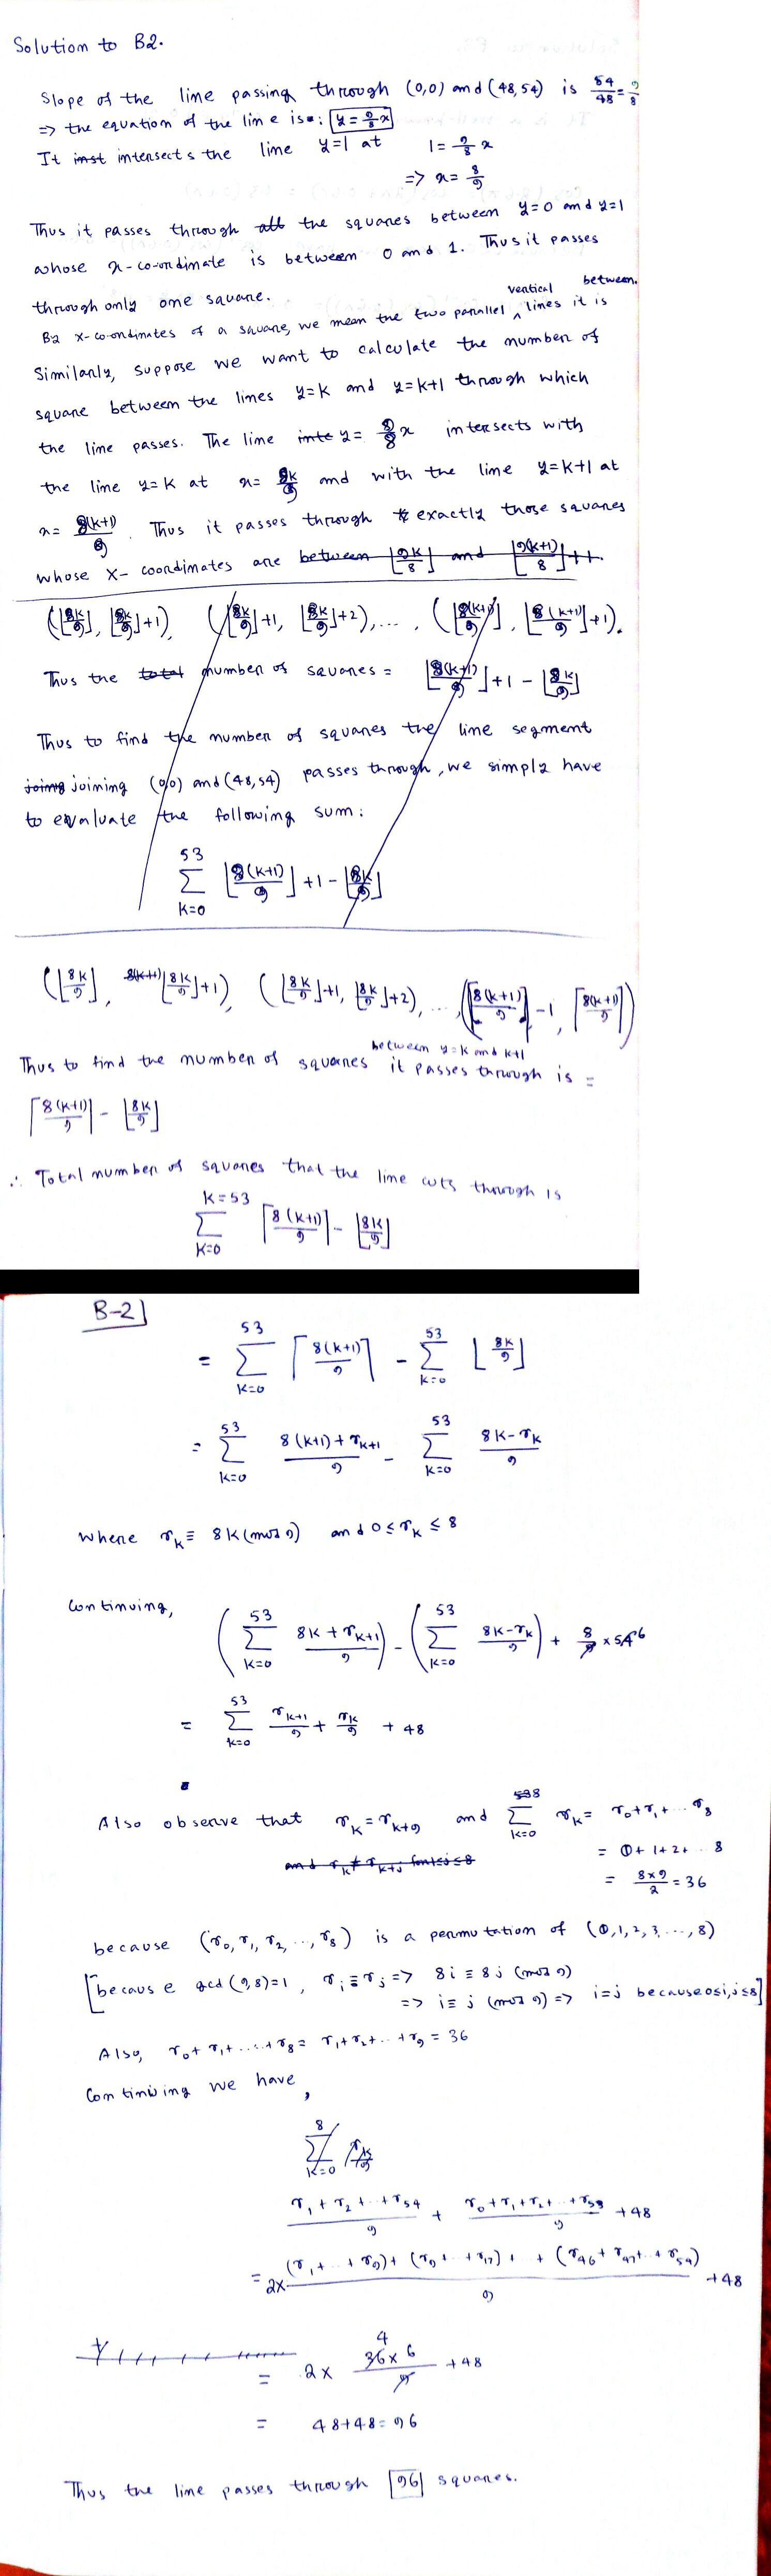 Solution to B2.
Slope of the line passing through (0,0) and (48,54) is 54/48 = 9/8
=> the equation of the line is: y = 9/8 x
It inst intersects the line y=1 at 1 = 9/8 x
=> x = 8/9
Thus it passes through all the squares between y=0 and y=1
whose x-co-ordinate is between 0 and 1. Thus it passes
through only one square.
By x-co-ordinates of a square, we mean the two parallel vertical lines it is between.
Similarly, suppose we want to calculate the number of
square between the lines y=k and y=k+1 through which
the line passes. The line inte y = 9/8 x intersects with
the line y=k at x = 8k/9 and with the line y=k+1 at
x = 8(k+1)/9. Thus it passes through exactly those squares
whose X-coordinates are between ⌊9k/8⌋ and ⌊9(k+1)/8⌋+1.
(⌊8k/9⌋, ⌊8k/9⌋+1), (⌊8k/9⌋+1, ⌊8k/9⌋+2), ..., (⌊8(k+1)/9⌋, ⌊8(k+1)/9⌋+1).
Thus the total number of squares = ⌊8(k+1)/9⌋+1 - ⌊8k/9⌋
Thus to find the number of squares the line segment
joing joining (0,0) and (48,54) passes through, we simply have
to evaluate the following sum:
53
Σ ⌊8(k+1)/9⌋+1-⌊8k/9⌋
k=0
(⌊8k/9⌋, 8(k+1) ⌊8k/9⌋+1), (⌊8k/9⌋+1, ⌊8k/9⌋+2), ..., (⌈8(k+1)/9⌉-1, ⌈8(k+1)/9⌉)
Thus to find the number of squares between y=k and k+1 it passes through is =
⌈8(k+1)/9⌉ - ⌊8k/9⌋
∴ Total number of squares that the line cuts through is
k=53
Σ ⌈8(k+1)/9⌉ - ⌊8k/9⌋
k=0
B-2]
= Σ_{k=0}^{53} ⌈8(k+1)/9⌉ - Σ_{k=0}^{53} ⌊8k/9⌋
= Σ_{k=0}^{53} (8(k+1)+r_{k+1})/9 - Σ_{k=0}^{53} (8k-r_k)/9
where r_k ≡ 8k (mod 9) and 0 ≤ r_k ≤ 8
Continuing,
(Σ_{k=0}^{53} (8k+r_{k+1})/9) - (Σ_{k=0}^{53} (8k-r_k)/9) + 8/9 × 54 6
= Σ_{k=0}^{53} r_{k+1}/9 + r_k/9 + 48
Also observe that r_k = r_{k+9} and Σ_{k=0}^{8} r_k = r_0+r_1+...r_8
and r_k ≠ r_{k+j} for 1≤j≤8
= 0+1+2+..8
= 8×9/2 = 36
because (r_0, r_1, r_2, ..., r_8) is a permutation of (0,1,2,3,...,8)
[because gcd(9,8)=1, r_i ≡ r_j => 8i ≡ 8j (mod 9)
=> i ≡ j (mod 9) => i=j because 0≤i,j≤8]
Also, r_0+r_1+....+r_8 = r_1+r_2+..+r_9 = 36
Continuing we have,
Σ_{k=0}^{8} r_k/9
(r_1+r_2+..+r_54)/9 + (r_0+r_1+r_2+..+r_53)/9 + 48
= 2× ((r_1+..+r_9)+(r_9+..+r_17)+ +(r_46+r_47+..+r_54))/9 + 48
= 2 × 36×6/9 4 + 48
= 48+48 = 96
Thus the line passes through 96 squares.